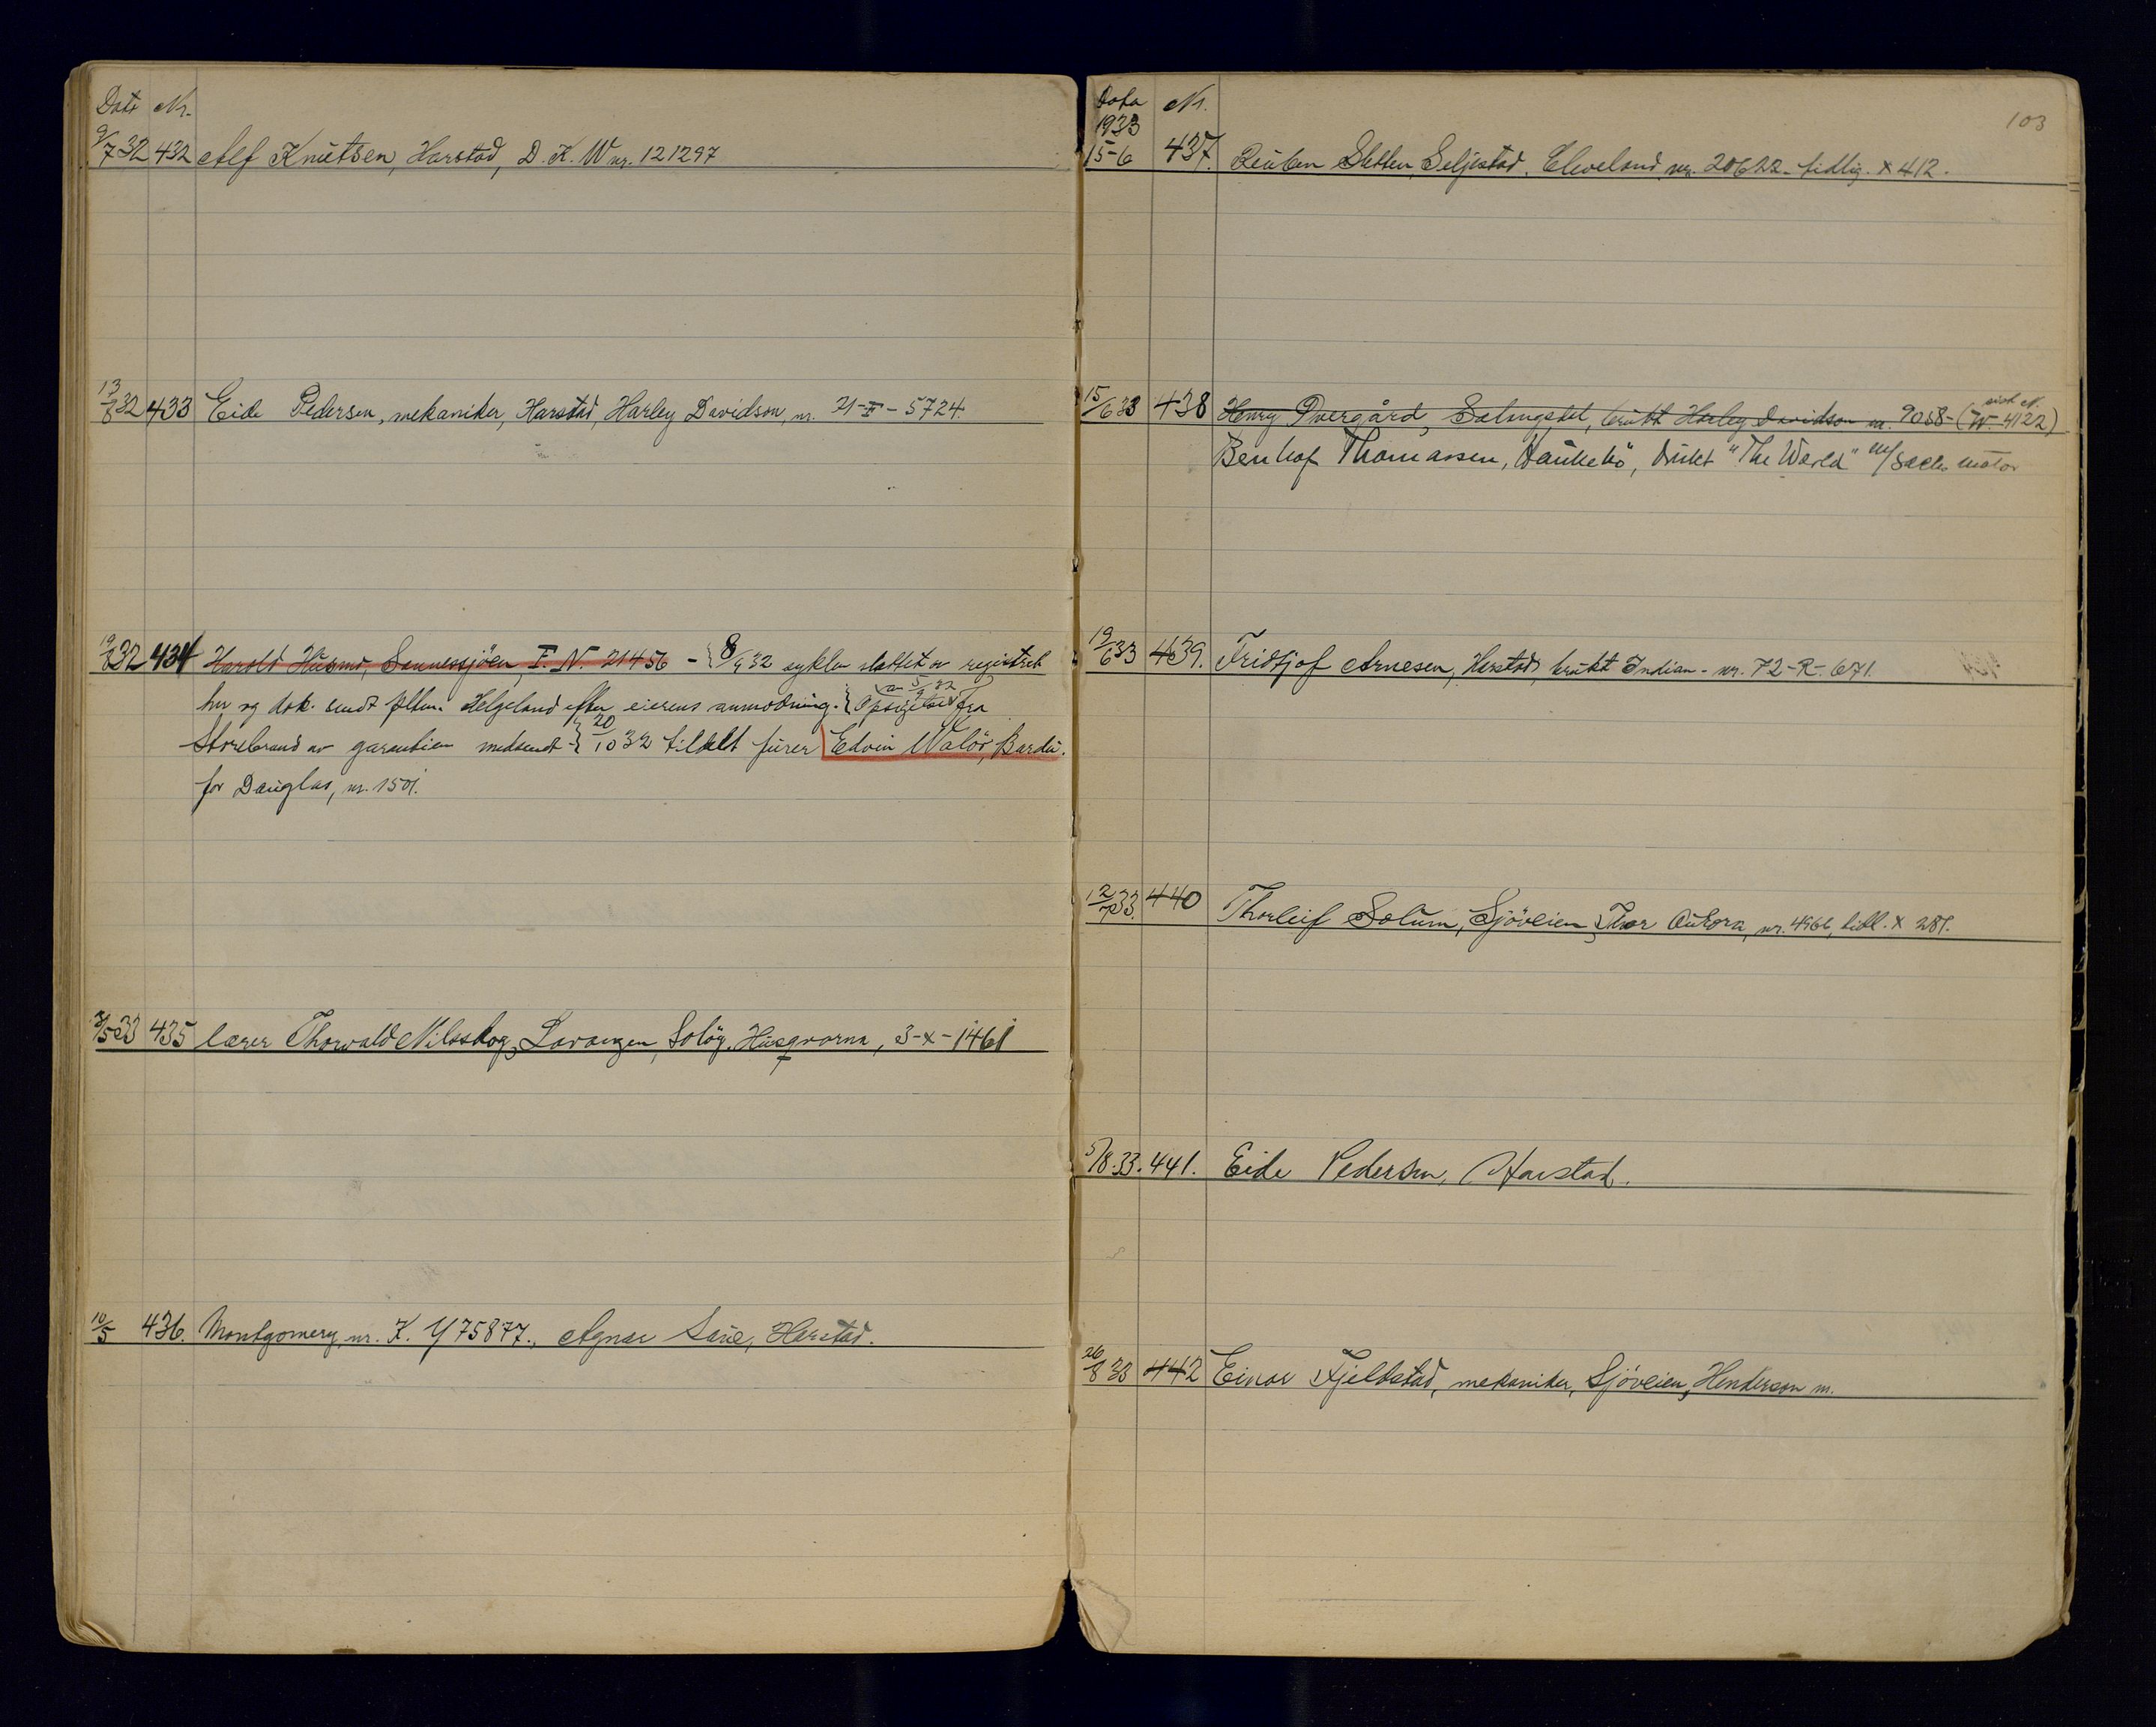 Dato Nr.
9/7 32 432 Alf Knutsen, Harstad, D.K.W nr. 121297
13/8 32 433 Eide Pedersen, mekaniker, Harstad, Harley Davidson, nr. 21-F-5724.
19/8 32 434 Harold Husmo, Sannessjöen, F.N. 21456 - { 8/9 32 syklen slettet av registret
her og dok. sendt pltm. Helgeland efter eierens anmodning. { Opsigelse fra
an 5/9 32
Storebrand av garantien medsendt { 20/10 32 tildelt furer Edvin Walör, Bardu.
for Douglas, nr. 1501.
3/5 33 435 lærer Thorvald Nilsskog, Lavangen, Solöy. Husqvarna, 3-x-1461
10/5 436. Montgomery nr. K. Y75877., Agnar Saue, Harstad.
103
Dato Nr.
1933
15-6 437. Reuben Sletten, Seljestad. Cleveland nr. 20622 - tidlig. X 412.
15/6 33 438 Henry Dvergård, Salangsdal, brukt Harley Davidson nr. 9058 - (W-4122)
Thomassen, brukt "The World" m/Sachs motor
19/6 33 439. Fridtjof Arnesen, Harstad, brukt Indian - nr. 72-R-671.
12/7 33. 440 Thorleif Solum, Sjöveien, Thor Aurora, nr. 4966, tidl. X 281.
5/8.33. 441. Eide Pedersen, Harstad.
26/8 33 442 Einar Fjeldstad, mekaniker, Sjöveien, Henderson nr.